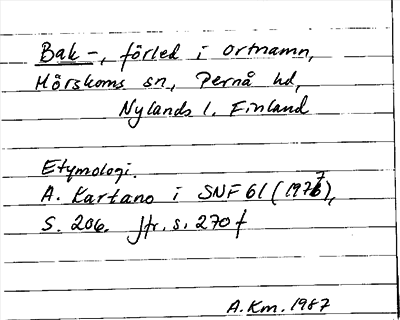 Bak-, förled i ortnamn,
Mörskoms sn, Pernå hd,
Nylands l. Finland
Etymologi.
A. Kartano i SNF 61 (1977),
S. 206. Jfr. s. 270 f
A.Km. 1987